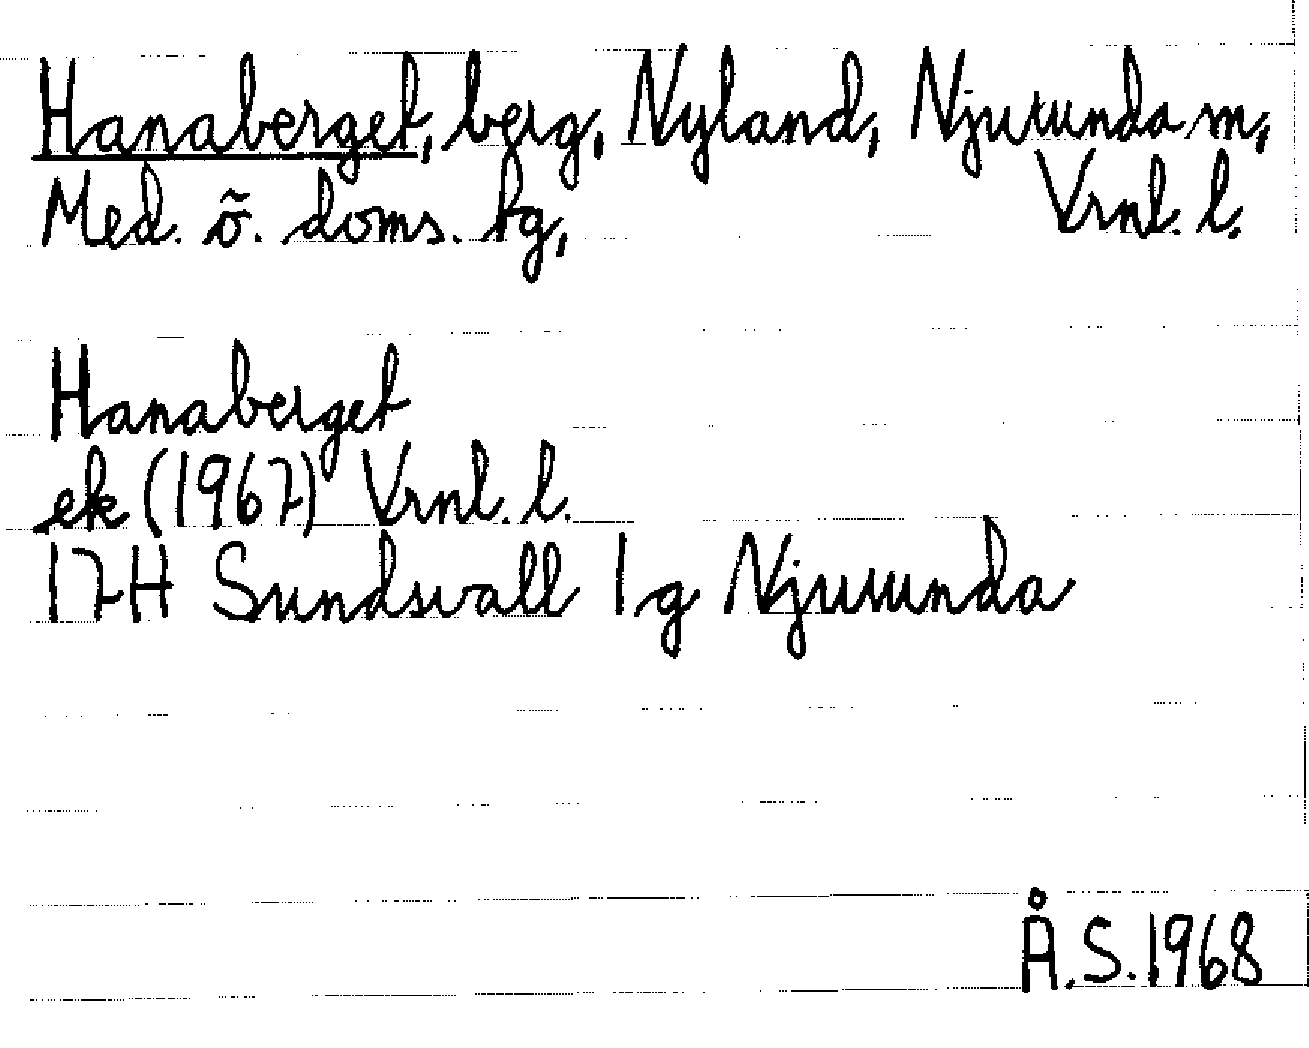 Hanaberget, berg, Nyland, Njurunda sn,
Med. ö. doms. tg, Vrnl. l.
Hanaberget
ek (1967) Vrnl. l.
17H Sundsvall 1g Njurunda
Å.S. 1968